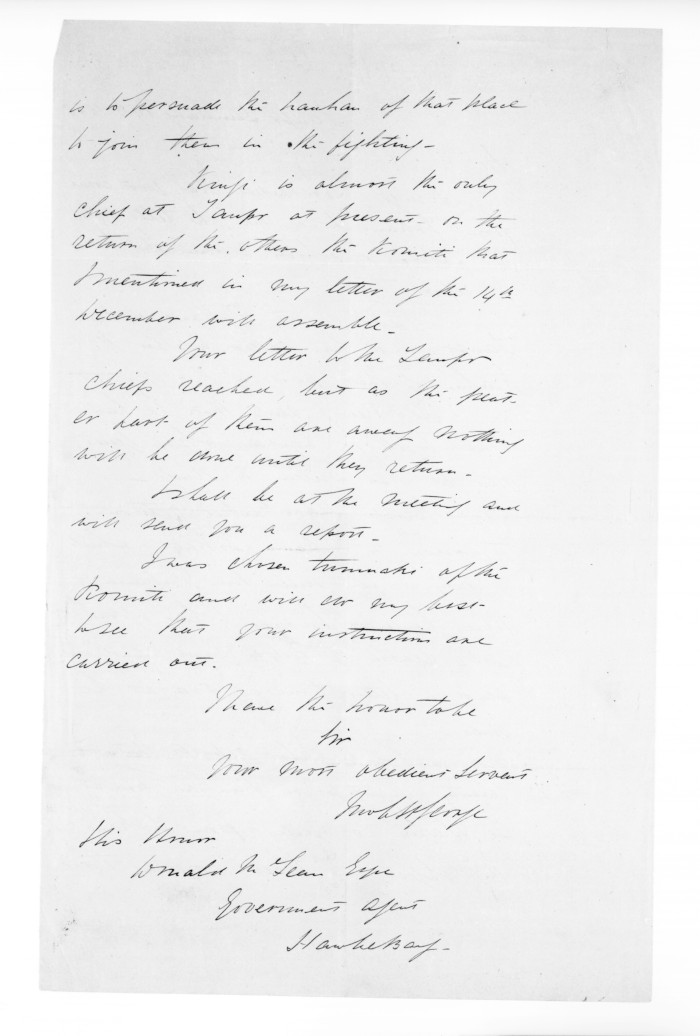 is to persuade the hauhau of that place
to join them in the fighting -
Kingi is almost the only
chief at Taupo at present - on the
return of the others the Komiti that
I mentioned in my letter of the 14th
December will assemble -
Your letter to the Taupo
chiefs reached, but as the great-
er part of them are away nothing
will be done until they return -
I shall be at the meeting and
will send you a report -
I was chosen tumuaki of the
Komiti and will do my best
to see that your instructions are
carried out.
I have the honor to be
Sir
Your most obedient Servant
George
His Honor
Donald McLean Esqre
Government Agent
Hawke Bay -